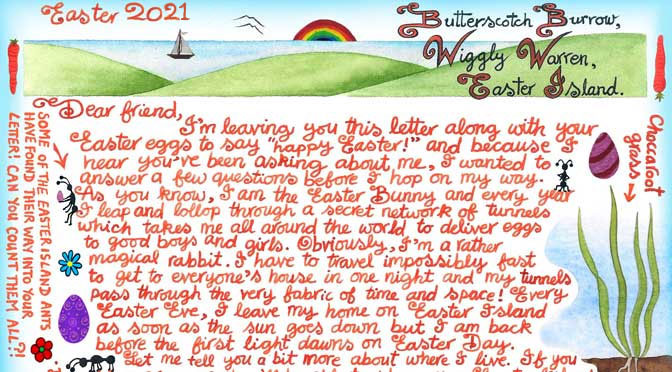 Easter 2021
Butterscotch Burrow,
Wiggly Warren,
Easter Island.
Dear friend,
I'm leaving you this letter along with your
Easter eggs to say "happy Easter!" and because I
hear you've been asking about me, I wanted to
answer a few questions before I hop on my way.
As you know, I am the Easter Bunny and every year
I leap and lollop through a secret network of tunnels
which takes me all around the world to deliver eggs
to good boys and girls. Obviously, I'm a rather
magical rabbit. I have to travel impossibly fast
to get to everyone's house in one night and my tunnels
pass through the very fabric of time and space! Every
Easter Eve, I leave my home on Easter Island
as soon as the sun goes down but I am back
before the first light dawns on Easter Day.
Let me tell you a bit more about where I live. If you
SOME OF THE EASTER ISLAND ANTS
HAVE FOUND THEIR WAY INTO YOUR
LETTER! CAN YOU COUNT THEM ALL?!
Chocatoot
grass